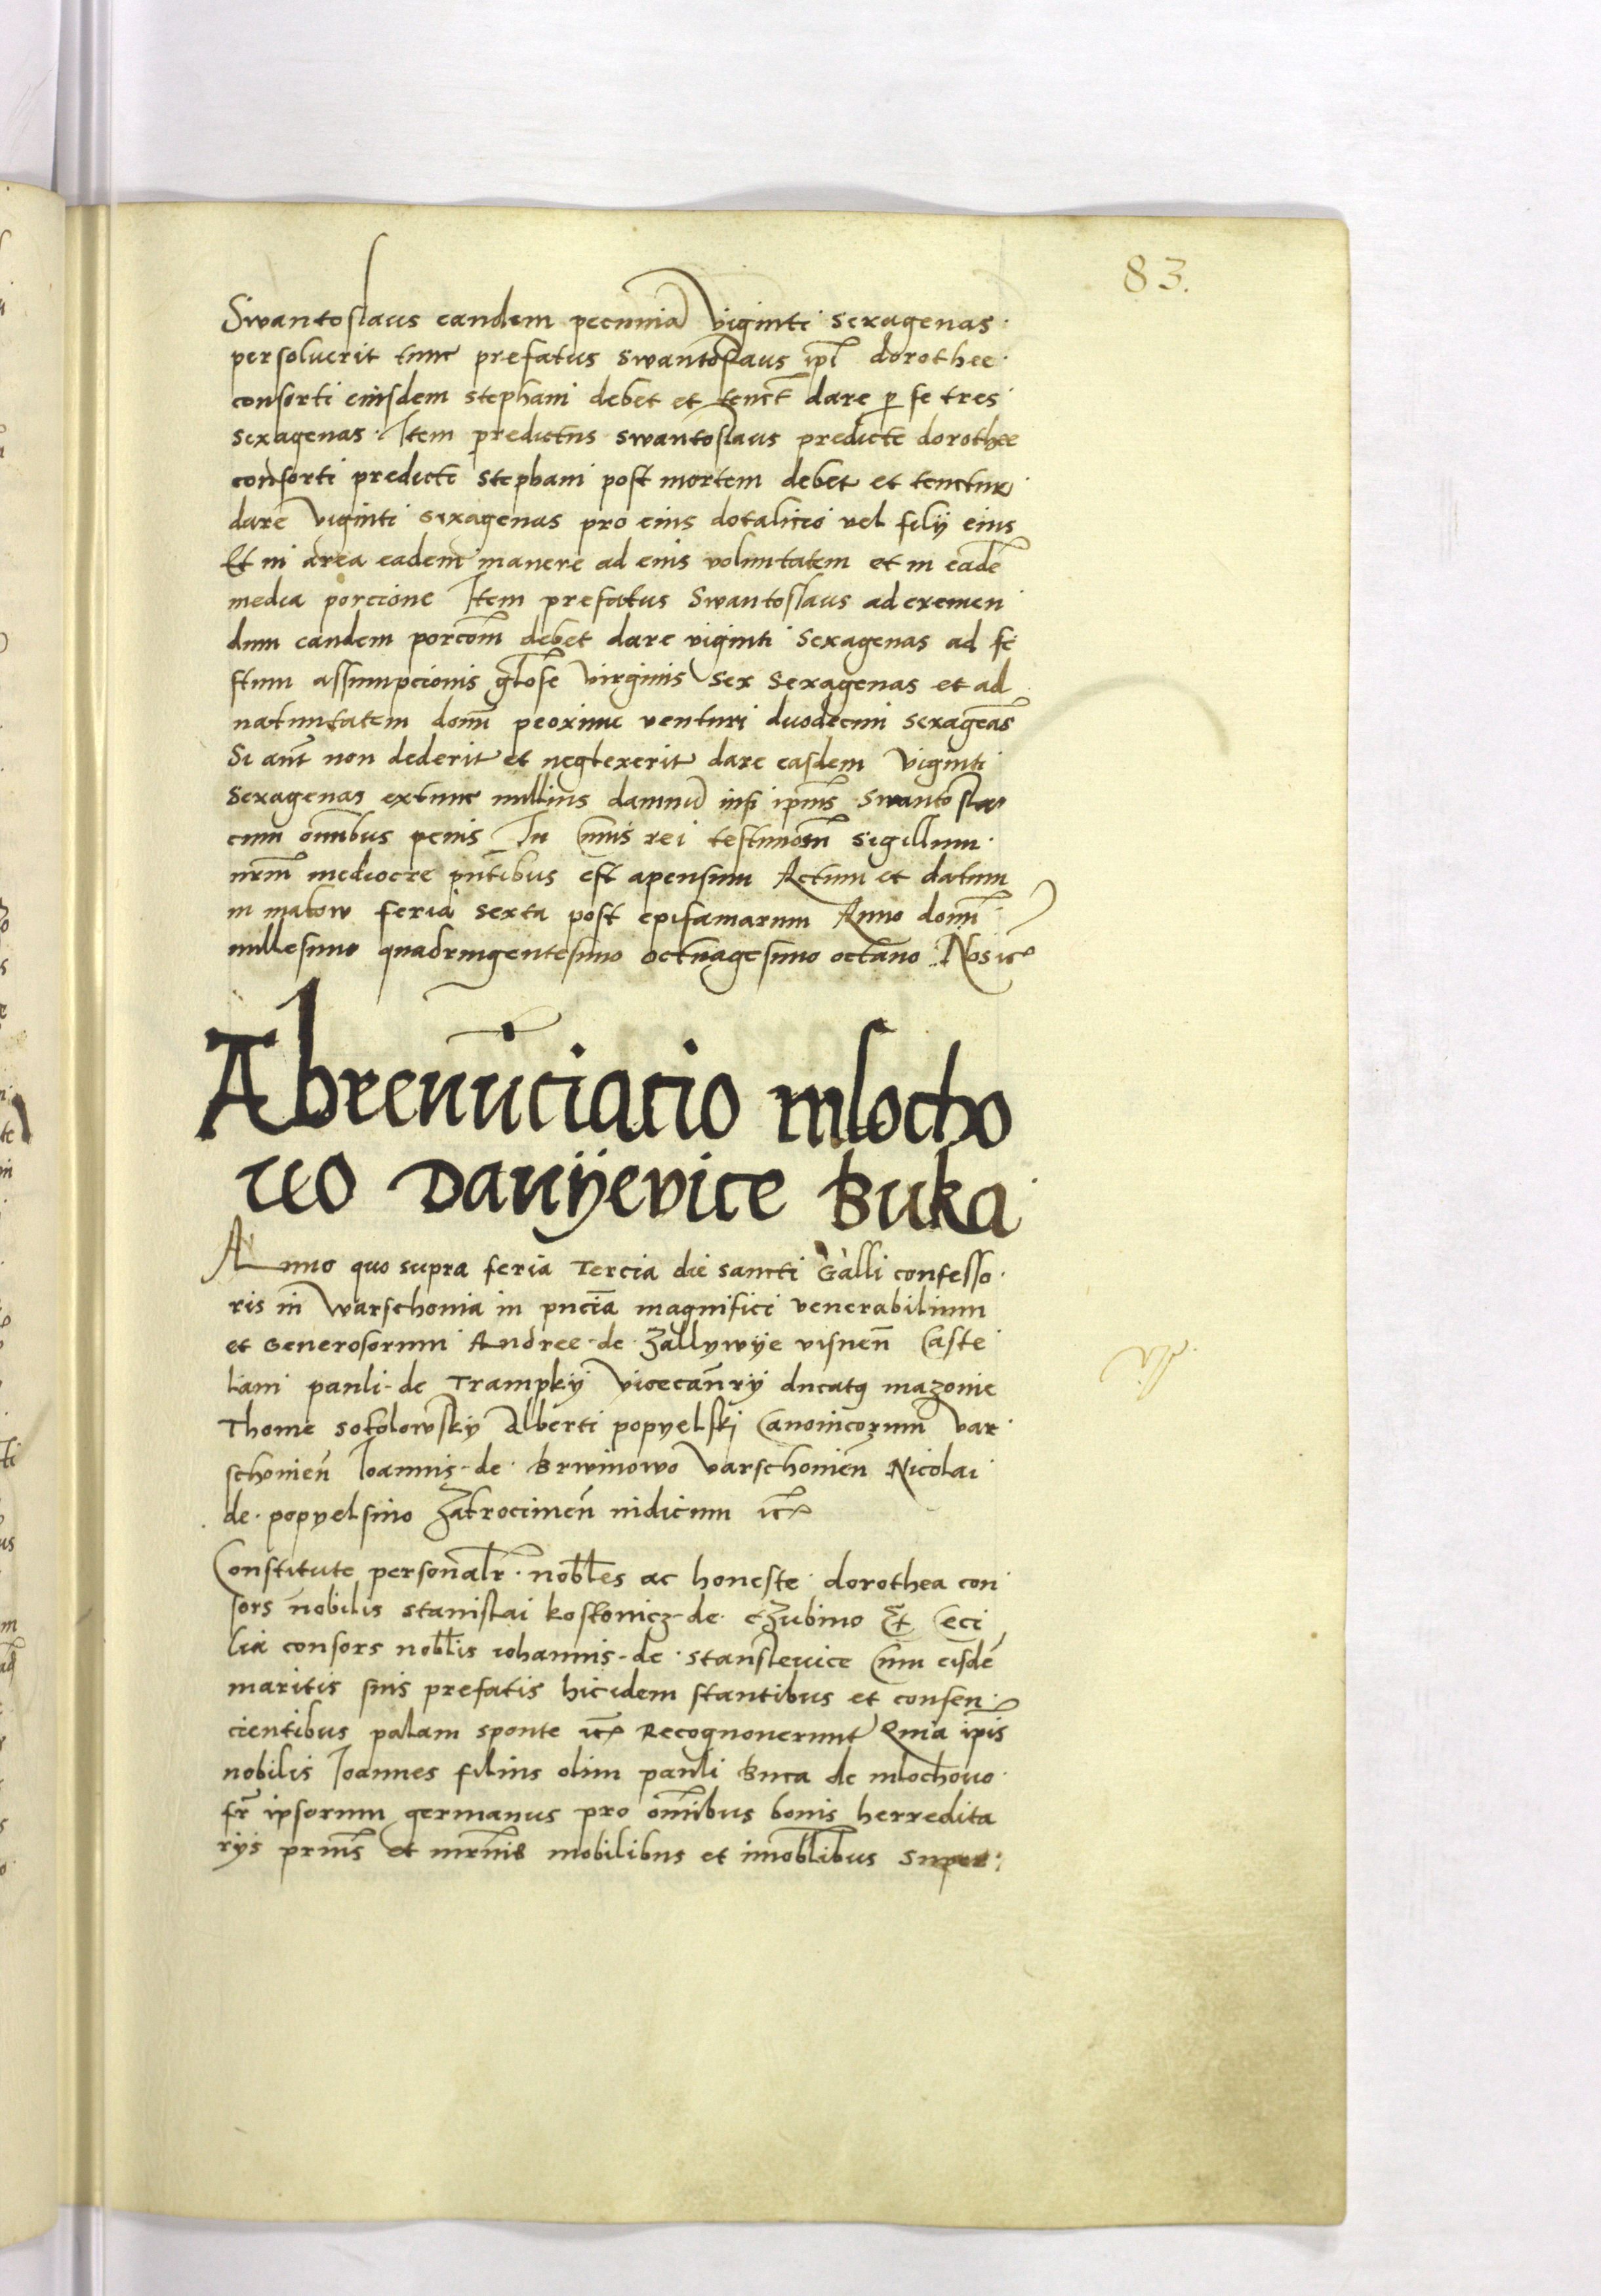 83.
Swantoslaus eandem pecuniā viginti sexagenas.
persoluerit tunc prefatus Swantoslaus ip̄i dorothee.
consorti eiusdem stephani debet et tenet̄ dare per se tres
sexagenas. Item predictus swantoslaus predicte dorothee
consorti predicti stephani post mortem debet et tenetur
dare viginti sexagenas pro eius dotalicio vel filÿ eius
Et in area eadem manere ad eius voluntatem et in eadē
media porcione Item prefatus Swantoslaus ad exemen
dum eandem porcōm debet dare viginti sexagenas ad fe
stum assumpcionis glōse virginis sex sexagenas et ad
natiuitatem domī proxime venturi duodecim sexageās
Si aut̄ non dederit et neglexerit dare easdem viginti
sexagenas extunc nullius damnū ipīus Swantoslai
cum om̄ibus penis In cuīus rei testimoīū sigillum.
nrm̄ mediocre pn̄tibus est apensum Actum et datum
in makow feria sexta post epifaniarum Anno domī
millesimo quadringentesimo octuagesimo octauo Nos itē
Abrenūciacio mlocho
wo Danÿevice Buka
Anno quo supra feria Tercia die sancti Galli confesso.
ris in warschouia in pn̄ciā magnifici venerabilium
et Generosorum Andree de zallywÿe visnen̄ Caste
lani pauli de Trampkÿ vicecan̄rÿ ducatꝯ mazouie
Thome sokolowskÿ Alberti popyelski Canonicorum var
schouien̄ Ioannis de Brwinowo varschouien̄ Nicolai
de popyelsino zakrocimen̄ iudicum itē
Constitute personalr̄. nobl̄es ac honeste dorothea con
sors nobilis stanislai kostonicz de czubino Et Ceci
lia consors nobl̄is iohannis de stanslewice cum eisdē
maritis suis prefatis hicidem stantibus et consen
cientibus palam sponte itē Recognouerunt Quia ip̄is
nobilis Ioannes filius olim pauli Buca de mlochouo
fr̄ ipsorum germanus pro om̄ibus bonis herredita
rÿs prn̄is et mrn̄is mobilibus et imobl̄ibus super